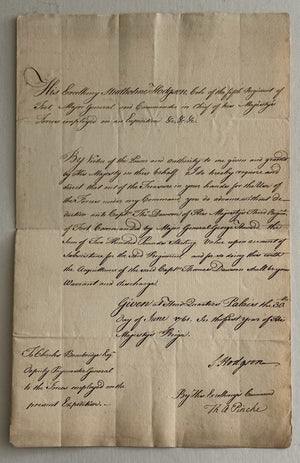 His Excellency Studholme Hodgson, Colo. of the fifth Regiment of
Foot, Major General and Commander in Chief of His Majesty's
Forces employed on an Expedition &c. &c. &c.
By Virtue of the Power and authority to me given and granted
by His Majesty in this behalf. I do hereby require and
direct that out of the Treasure in your hands for the Use of
the Forces under my Command you do advance without de-
duction unto Captn. Thos. Dawson of His Majesty's Third Regiment
of Foot Commanded by Major General George Howard the
Sum of Two Hundred Pounds Sterling Value upon account of
Subsistence for the said Regiment and for so doing this with
the Acquittance of the said Captn. Thomas Dawson shall be your
Warrant and discharge.
Given at Head Quarters Palais this 30th
Day of June 1761. In the first Year of His
Majesty's Reign.
S. Hodgson
To Charles Bembridge Esqr.
Deputy Paymaster General
to the Forces employed on the
present Expedition.
By His Excellency's Command